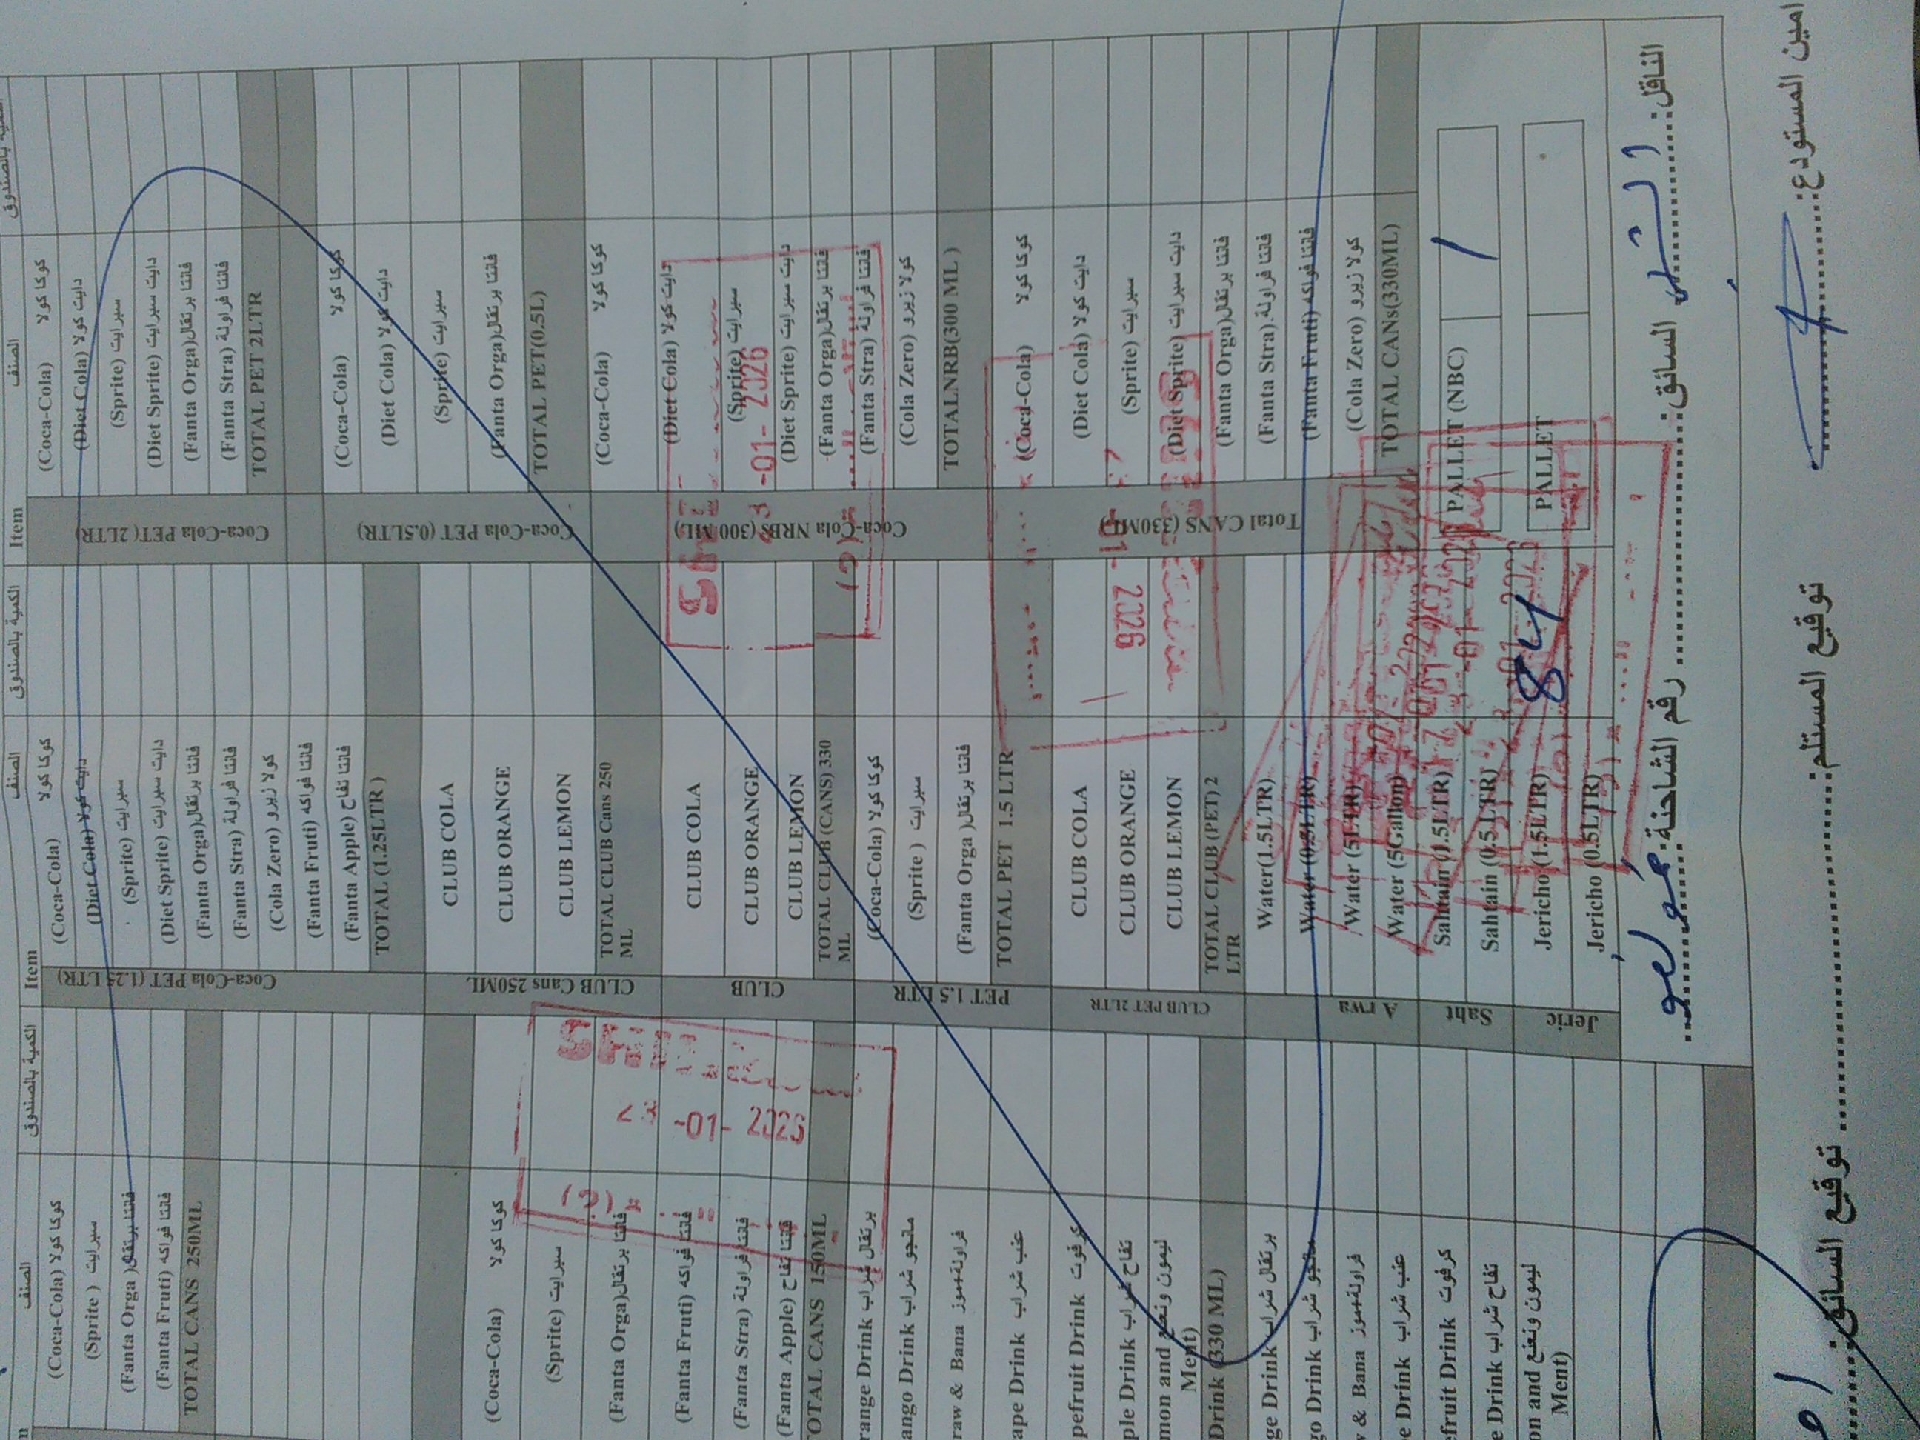 الصنف
الكمية بالصندوق
Item
الصنف
الكمية بالصندوق
Item
الصنف
(Coca-Cola) كوكا كولا
(Sprite ) سبرايت
(Fanta Orga) فانتا برتقال
(Fanta Fruti) فانتا فواكه
TOTAL CANS 250ML
(Coca-Cola) كوكا كولا
(Sprite) سبرايت
(Fanta Orga) فانتا برتقال
(Fanta Fruti) فانتا فواكه
(Fanta Stra) فانتا فراولة
(Fanta Apple) فانتا تفاح
TOTAL CANS 150ML
range Drink برتقال شراب
ango Drink مانجو شراب
raw & Bana فراولة+موز
ape Drink عنب شراب
pefruit Drink كرفوت
ple Drink تفاح شراب
mon and ليمون ونعنع
Ment)
Drink (330 ML)
ge Drink برتقال شراب
go Drink مانجو شراب
w & Bana فراولة+موز
e Drink عنب شراب
efruit Drink كرفوت
e Drink تفاح شراب
on and ليمون ونعنع
Ment)
Coca-Cola PET (1.25 LTR)
(Coca-Cola) كوكا كولا
(Diet Cola) دايت كولا
(Sprite) سبرايت
(Diet Sprite) دايت سبرايت
(Fanta Orga) فانتا برتقال
(Fanta Stra) فانتا فراولة
(Cola Zero) كولا زيرو
(Fanta Fruti) فانتا فواكه
(Fanta Apple) فانتا تفاح
TOTAL (1.25LTR )
CLUB Cans 250ML
CLUB COLA
CLUB ORANGE
CLUB LEMON
TOTAL CLUB Cans 250
ML
CLUB
CLUB COLA
CLUB ORANGE
CLUB LEMON
TOTAL CLUB (CANS) 330
ML
PET 1.5 LTR
(Coca-Cola) كوكا كولا
(Sprite ) سبرايت
(Fanta Orga ) فانتا برتقال
TOTAL PET 1.5 LTR
CLUB PET 2LTR
CLUB COLA
CLUB ORANGE
CLUB LEMON
TOTAL CLUB (PET) 2
LTR
Arwa
Water(1.5LTR)
Water (0.5LTR)
Water (5LTR)
Water (5Gallon)
Saht
Sahtain (1.5LTR)
Sahtain (0.5 LTR)
Jeric
Jericho (1.5LTR) 84
Jericho (0.5LTR)
Coca-Cola PET ( 2LTR)
(Coca-Cola) كوكا كولا
(Diet Cola) دايت كولا
(Sprite) سبرايت
(Diet Sprite) دايت سبرايت
(Fanta Orga) فانتا برتقال
(Fanta Stra) فانتا فراولة
TOTAL PET 2LTR
Coca-Cola PET (0.5LTR)
(Coca-Cola) كوكا كولا
(Diet Cola) دايت كولا
(Sprite) سبرايت
(Fanta Orga) فانتا برتقال
TOTAL PET(0.5L)
Coca-Cola NRBS (300 ML)
(Coca-Cola) كوكا كولا
(Diet Cola) دايت كولا
(Sprite) سبرايت
(Diet Sprite) دايت سبرايت
(Fanta Orga) فانتا برتقال
(Fanta Stra) فانتا فراولة
(Cola Zero) كولا زيرو
TOTALNRB(300 ML )
Total CANS (330ML)
(Coca-Cola) كوكا كولا
(Diet Cola) دايت كولا
(Sprite) سبرايت
(Diet Sprite) دايت سبرايت
(Fanta Orga) فانتا برتقال
(Fanta Stra) فانتا فراولة
(Fanta Fruti) فانتا فواكه
(Cola Zero) كولا زيرو
TOTAL CANs(330ML)
PALLET (NBC) 1
PALLET
-01- 2026
-01- 2026
2026
رقم الشاحنة:
السائق:
الناقل:
توقيع السائق:
توقيع المستلم:
امين المستودع: